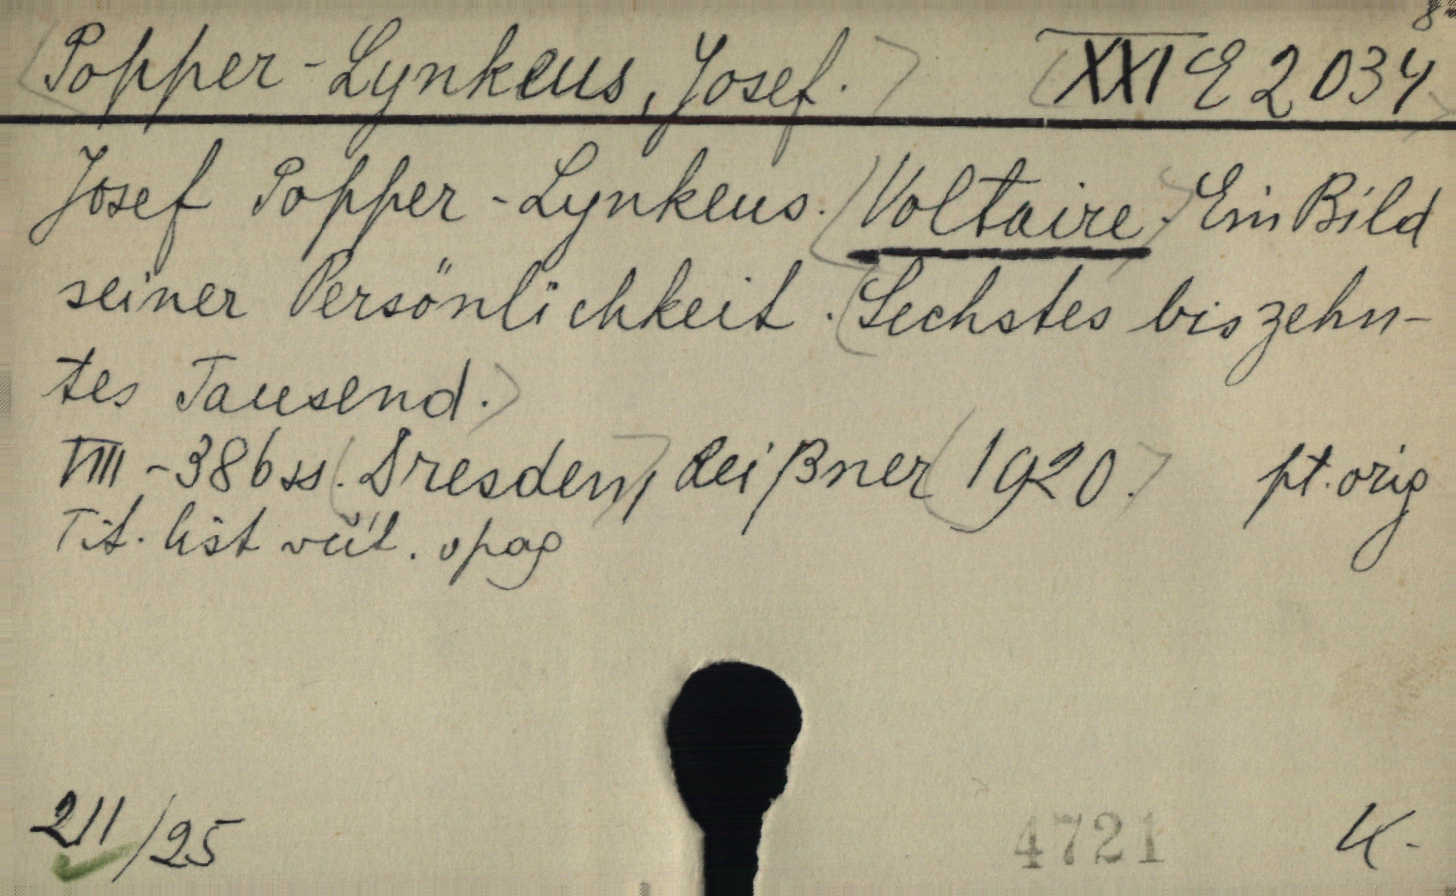 8°
Popper-Lynkeus, Josef. XXI E 2034
Josef Popper-Lynkeus. Voltaire. Ein Bild
seiner Persönlichkeit. (Sechstes bis zehn-
tes Tausend.)
VIII-386 ss. Dresden, Reißner 1920. pt. orig
Tit. list opag
211/25
4721 K.